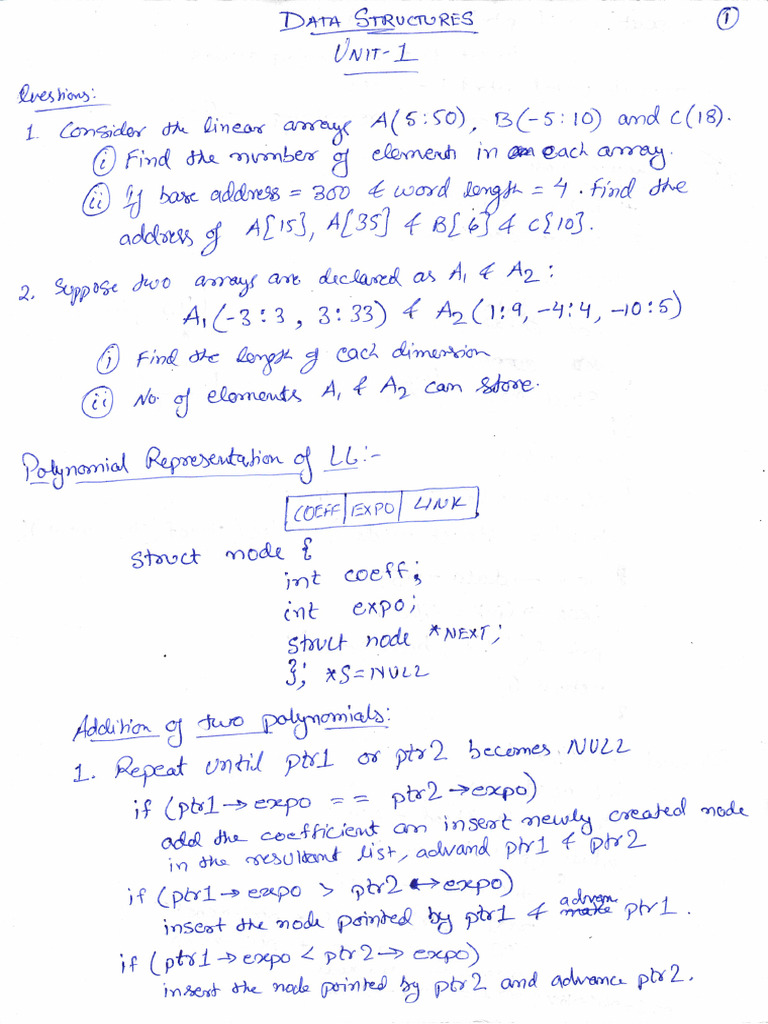 DATA STRUCTURES
1
UNIT-1
Questions:
1. Consider the linear arrays A(5:50), B(-5:10) and C(18).
i Find the number of elements in each array.
ii If base address = 300 & word length = 4. Find the
address of A[15], A[35] & B[6] & C[10].
2. Suppose two arrays are declared as A1 & A2:
A1(-3:3, 3:33) & A2(1:9, -4:4, -10:5)
i Find the length of each dimension
ii No. of elements A1 & A2 can store.
Polynomial Representation of LL:-
COEFF EXPO LINK
struct node {
int coeff;
int expo;
struct node *NEXT;
}; *S=NULL
Addition of two polynomials:
1. Repeat until ptr1 or ptr2 becomes NULL
if (ptr1→expo == ptr2→expo)
add the coefficient an insert newly created node
in the resultant list, advand ptr1 & ptr2
if (ptr1→expo > ptr2↔expo)
insert the node pointed by ptr1 & advan ptr1.
if (ptr1→expo < ptr2→expo)
insert the node pointed by ptr2 and advance ptr2.